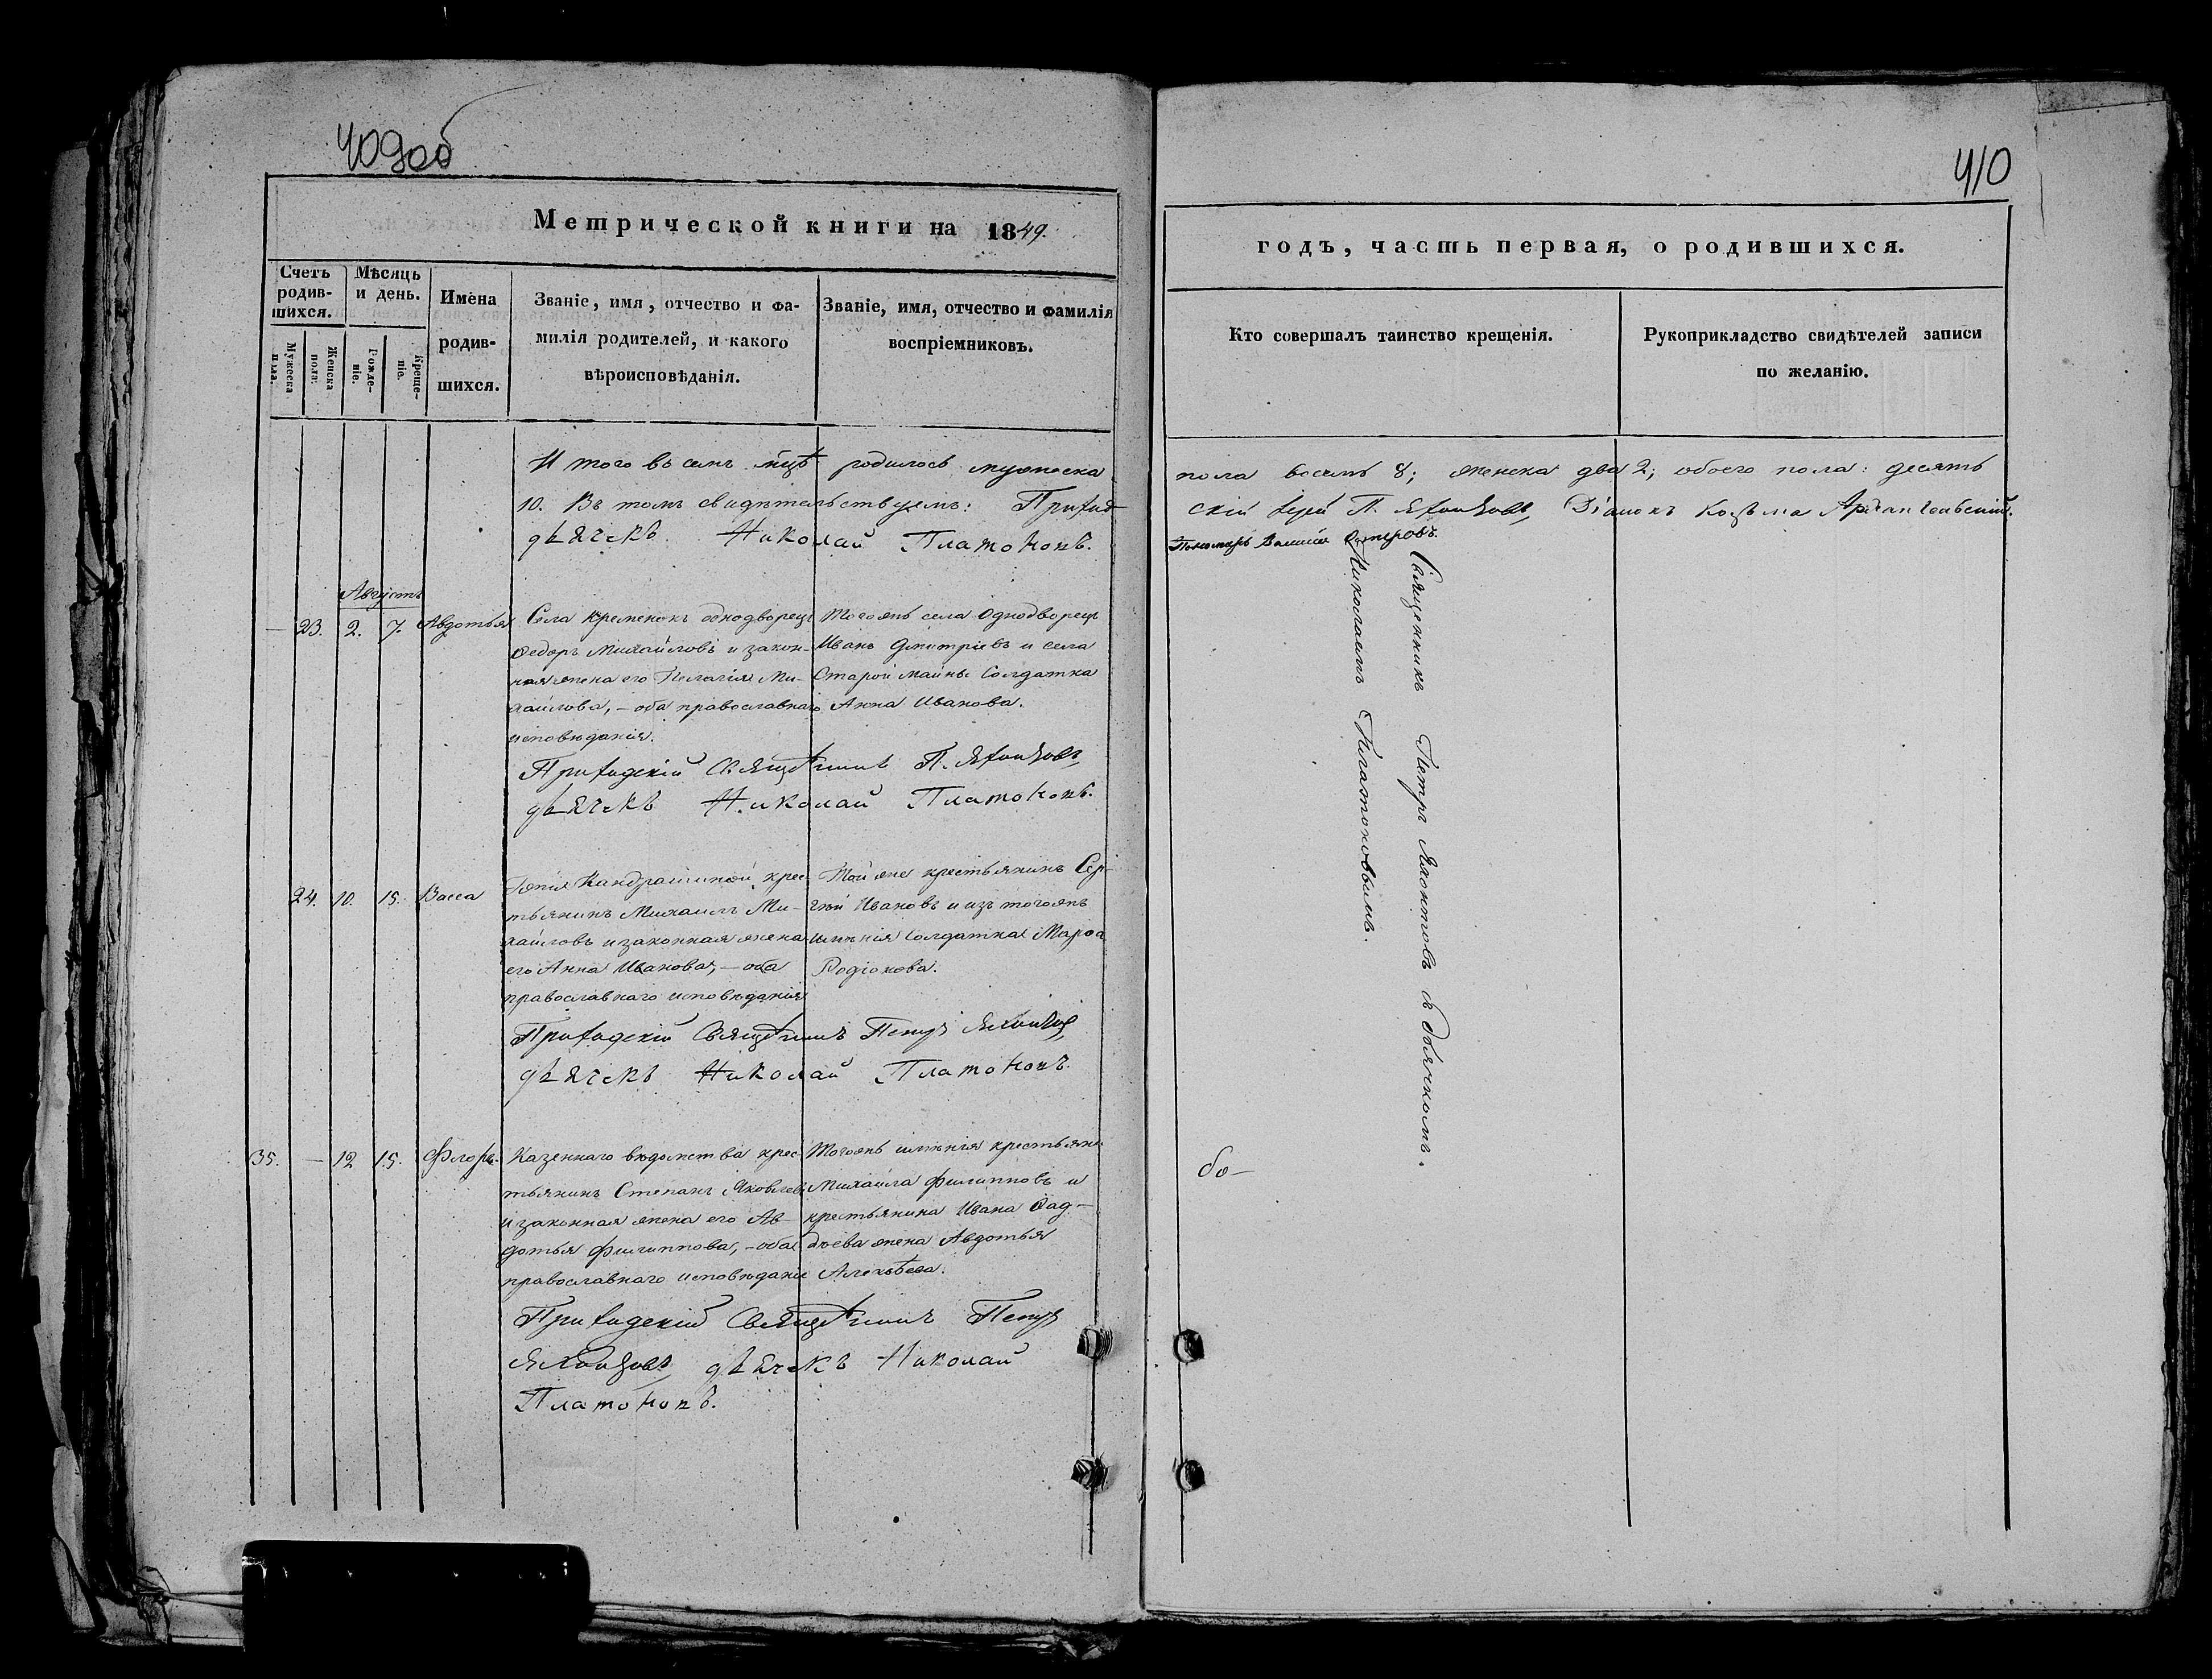 409об
410
Метрической книги на 1849.
годъ, часть первая, о родившихся.
Счетъ родив-шихся.
Мѣсяцъ и день.
Имена родив-шихся.
Званіе, имя, отчество и фа-
милія родителей, и какого
вѣроисповѣданія.
Званіе, имя, отчество и фамилія
воспріемниковъ.
Мужеска пола.
Женска пола.
Рожде-ніе.
Креще-ніе.
Кто совершалъ таинство крещенія.
Рукоприкладство свидѣтелей записи
по желанію.
И того въ семъ мцѣ родилось мужеска
пола восемь 8; женска два 2; обоего пола: десять
10. Въ томъ свидѣтельствуемъ: Приход-
скій Іерей П. Яхонтовъ, Діаконъ Козьма Архангельскій.
дьячекъ Николай Платоновъ.
Пономарь
Августъ
23. 2. 7. Авдотья
Села Кременокъ однодворецъ
Ѳедоръ Михайловъ и закон-
ная жена его Пелагія Ми-
хайлова, – оба православнаго
исповѣданія.
Тогожъ села Однодворецъ
Иванъ Дмитріевъ и села
Старой майны Солдатка
Анна Иванова.
Приходскій Священникъ П. Яхонтовъ,
дьячекъ Николай Платоновъ.
Священникъ Петръ Яхонтовъ съ дьячкомъ
Николаемъ Платоновымъ.
24. 10. 15. Васса
крес-
тьянинъ Михаилъ Ми-
хайловъ и законная жена
его Анна Иванова, – оба
православнаго исповѣданія
Той же крестьянинъ Сер-
гѣй Ивановъ и изъ тогожъ
имѣнія Солдатка Марѳа
Родіонова.
Приходскій Священникъ Петръ Яхонтовъ,
дьячекъ Николай Платоновъ.
35. – 12 15. Флоръ.
Казеннаго вѣдомства крес-
тьянинъ Степанъ Яковлевъ
и законная жена его Ав-
дотья Филиппова, – оба
православнаго исповѣданія
Тогожъ имѣнія крестьянинъ
Михайла Филипповъ и
крестьянина Ивана Ѳад-
дѣева жена Авдотья
Алексѣева.
Приходскій Священникъ Петръ
Яхонтовъ, дьячекъ Николай
Платоновъ.